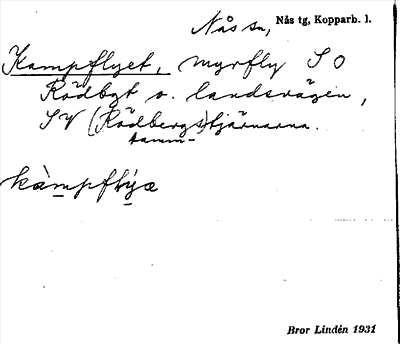 Nås sn, Nås tg, Kopparb. l.
Kampflyet, myrfly S O
Rödbgt o. landsvägen,
SV (Rödbergs)tjärnarna.
tamm-
kàmpflýæ
Bror Lindén 1931